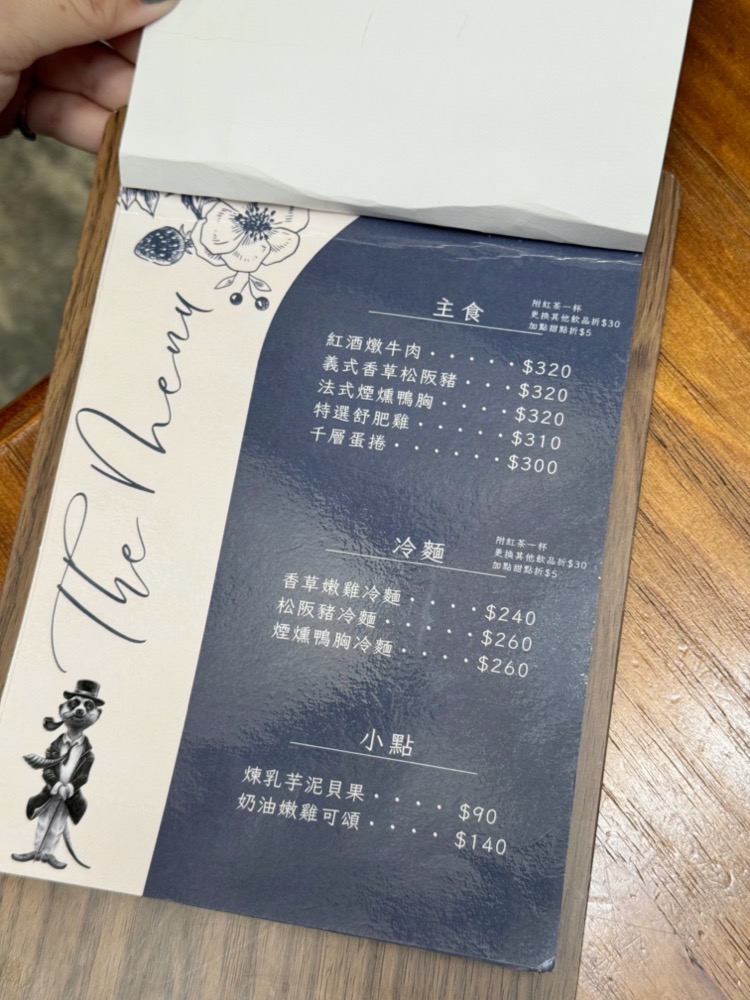 The Menu
主食
附紅茶一杯
更換其他飲品折$30
加點甜點折$5
紅酒燉牛肉 · · · · · $320
義式香草松阪豬 · · · $320
法式煙燻鴨胸 · · · · $320
特選舒肥雞 · · · · · $310
千層蛋捲 · · · · · · $300
冷麵
附紅茶一杯
更換其他飲品折$30
加點甜點折$5
香草嫩雞冷麵 · · · · $240
松阪豬冷麵 · · · · · $260
煙燻鴨胸冷麵 · · · · $260
小點
煉乳芋泥貝果 · · · · $90
奶油嫩雞可頌 · · · · $140